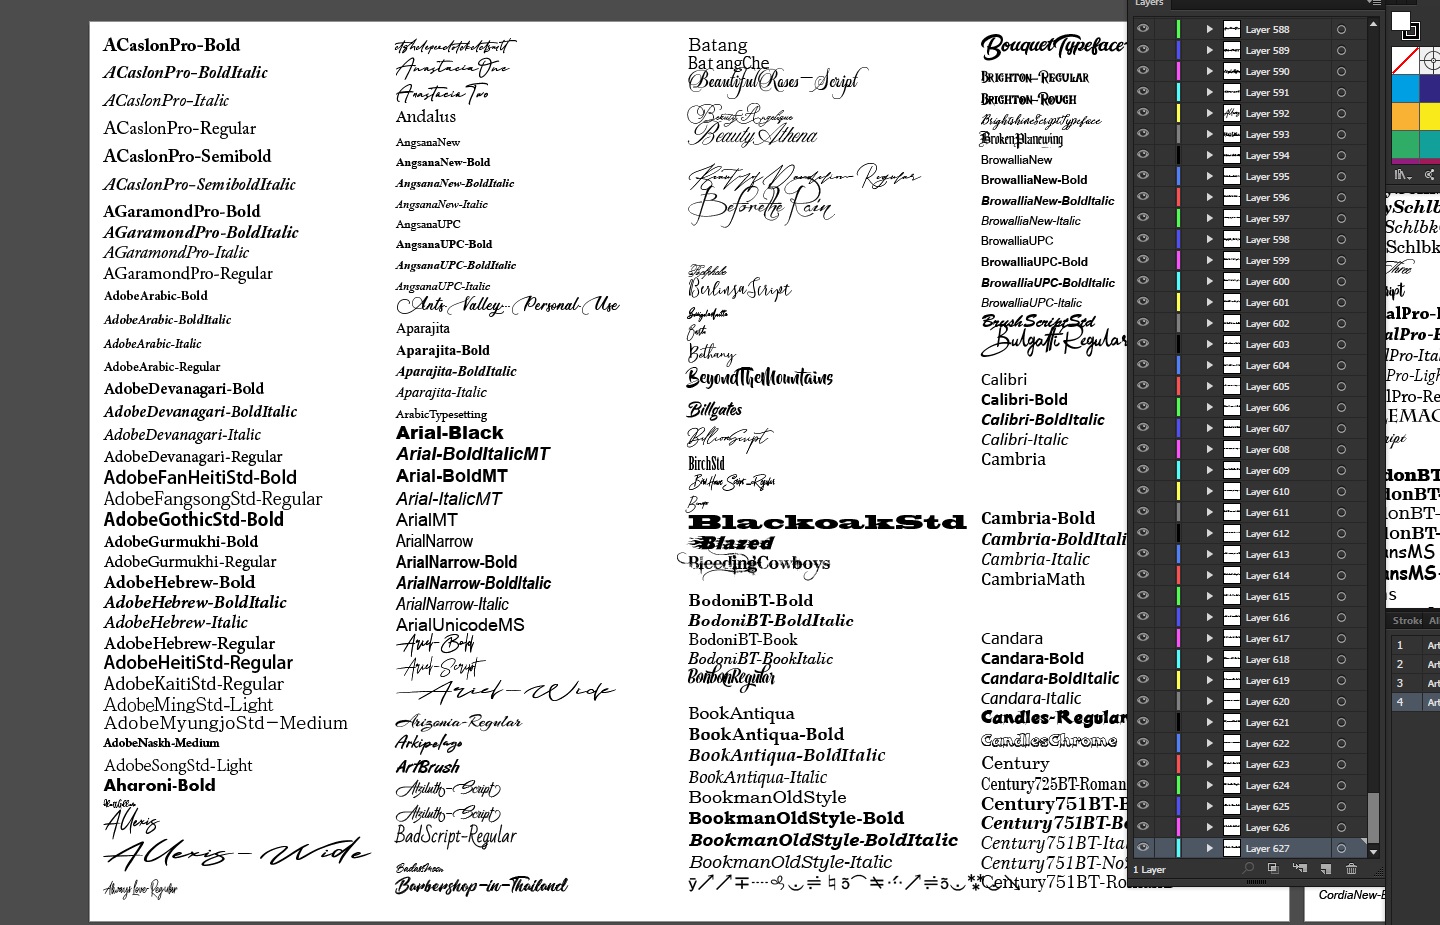 ACaslonPro-Bold
ACaslonPro-BoldItalic
ACaslonPro-Italic
ACaslonPro-Regular
ACaslonPro-Semibold
ACaslonPro-SemiboldItalic
AGaramondPro-Bold
AGaramondPro-BoldItalic
AGaramondPro-Italic
AGaramondPro-Regular
AdobeArabic-Bold
AdobeArabic-BoldItalic
AdobeArabic-Italic
AdobeArabic-Regular
AdobeDevanagari-Bold
AdobeDevanagari-BoldItalic
AdobeDevanagari-Italic
AdobeDevanagari-Regular
AdobeFanHeitiStd-Bold
AdobeFangsongStd-Regular
AdobeGothicStd-Bold
AdobeGurmukhi-Bold
AdobeGurmukhi-Regular
AdobeHebrew-Bold
AdobeHebrew-BoldItalic
AdobeHebrew-Italic
AdobeHebrew-Regular
AdobeHeitiStd-Regular
AdobeKaitiStd-Regular
AdobeMingStd-Light
AdobeMyungjoStd-Medium
AdobeNaskh-Medium
AdobeSongStd-Light
Aharoni-Bold
Allexis
Allexis-Wide
Always Love-Regular
AnastaciaOne
AnastaciaTwo
Andalus
AngsanaNew
AngsanaNew-Bold
AngsanaNew-BoldItalic
AngsanaNew-Italic
AngsanaUPC
AngsanaUPC-Bold
AngsanaUPC-BoldItalic
AngsanaUPC-Italic
Ants-Valley---Personal-Use
Aparajita
Aparajita-Bold
Aparajita-BoldItalic
Aparajita-Italic
ArabicTypesetting
Arial-Black
Arial-BoldItalicMT
Arial-BoldMT
Arial-ItalicMT
ArialMT
ArialNarrow
ArialNarrow-Bold
ArialNarrow-BoldItalic
ArialNarrow-Italic
ArialUnicodeMS
Ariel-Bold
Ariel-Script
Ariel-Wide
Arizonia-Regular
Arkipelago
ArtBrush
BadScript-Regular
Barbershop-in-Thailand
Batang
BatangChe
BeautifulRoses-Script
Beauty Angelique
BeautyAthena
Beauty-Dandelion-Regular
BeforetheRain
BerlinsaScript
Bethany
BeyondTheMountains
Billgates
BillionScript
BirchStd
BlackoakStd
Blazed
BleedingCowboys
BodoniBT-Bold
BodoniBT-BoldItalic
BodoniBT-Book
BodoniBT-BookItalic
BonbonRegular
BookAntiqua
BookAntiqua-Bold
BookAntiqua-BoldItalic
BookAntiqua-Italic
BookmanOldStyle
BookmanOldStyle-Bold
BookmanOldStyle-BoldItalic
BookmanOldStyle-Italic
BouquetTypeface
Brighton-Regular
Brighton-Rough
BrightshineScriptTypeface
BrokenPlanewing
BrowalliaNew
BrowalliaNew-Bold
BrowalliaNew-BoldItalic
BrowalliaNew-Italic
BrowalliaUPC
BrowalliaUPC-Bold
BrowalliaUPC-BoldItalic
BrowalliaUPC-Italic
BrushScriptStd
Bulgatti Regular
Calibri
Calibri-Bold
Calibri-BoldItalic
Calibri-Italic
Cambria
Cambria-Bold
Cambria-BoldItali
Cambria-Italic
CambriaMath
Candara
Candara-Bold
Candara-BoldItalic
Candara-Italic
Candles-Regular
CandlesChrome
Century
Century725BT-Roman
Century751BT-B
Century751BT-Bo
Century751BT-Ital
Century751BT-No2
Century751BT-Ro
Layers
Layer 588
Layer 589
Layer 590
Layer 591
Layer 592
Layer 593
Layer 594
Layer 595
Layer 596
Layer 597
Layer 598
Layer 599
Layer 600
Layer 601
Layer 602
Layer 603
Layer 604
Layer 605
Layer 606
Layer 607
Layer 608
Layer 609
Layer 610
Layer 611
Layer 612
Layer 613
Layer 614
Layer 615
Layer 616
Layer 617
Layer 618
Layer 619
Layer 620
Layer 621
Layer 622
Layer 623
Layer 624
Layer 625
Layer 626
Layer 627
1 Layer
Stroke
1 Art
2 Art
3 Art
4 Art
CordiaNew-B